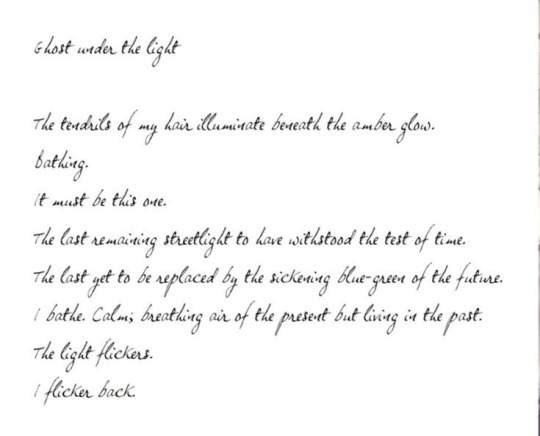 Ghost under the light
The tendrils of my hair illuminate beneath the amber glow.
Bathing.
It must be this one.
The last remaining streetlight to have withstood the test of time.
The last yet to be replaced by the sickening blue-green of the future.
I bathe. Calm; breathing air of the present but living in the past.
The light flickers.
I flicker back.